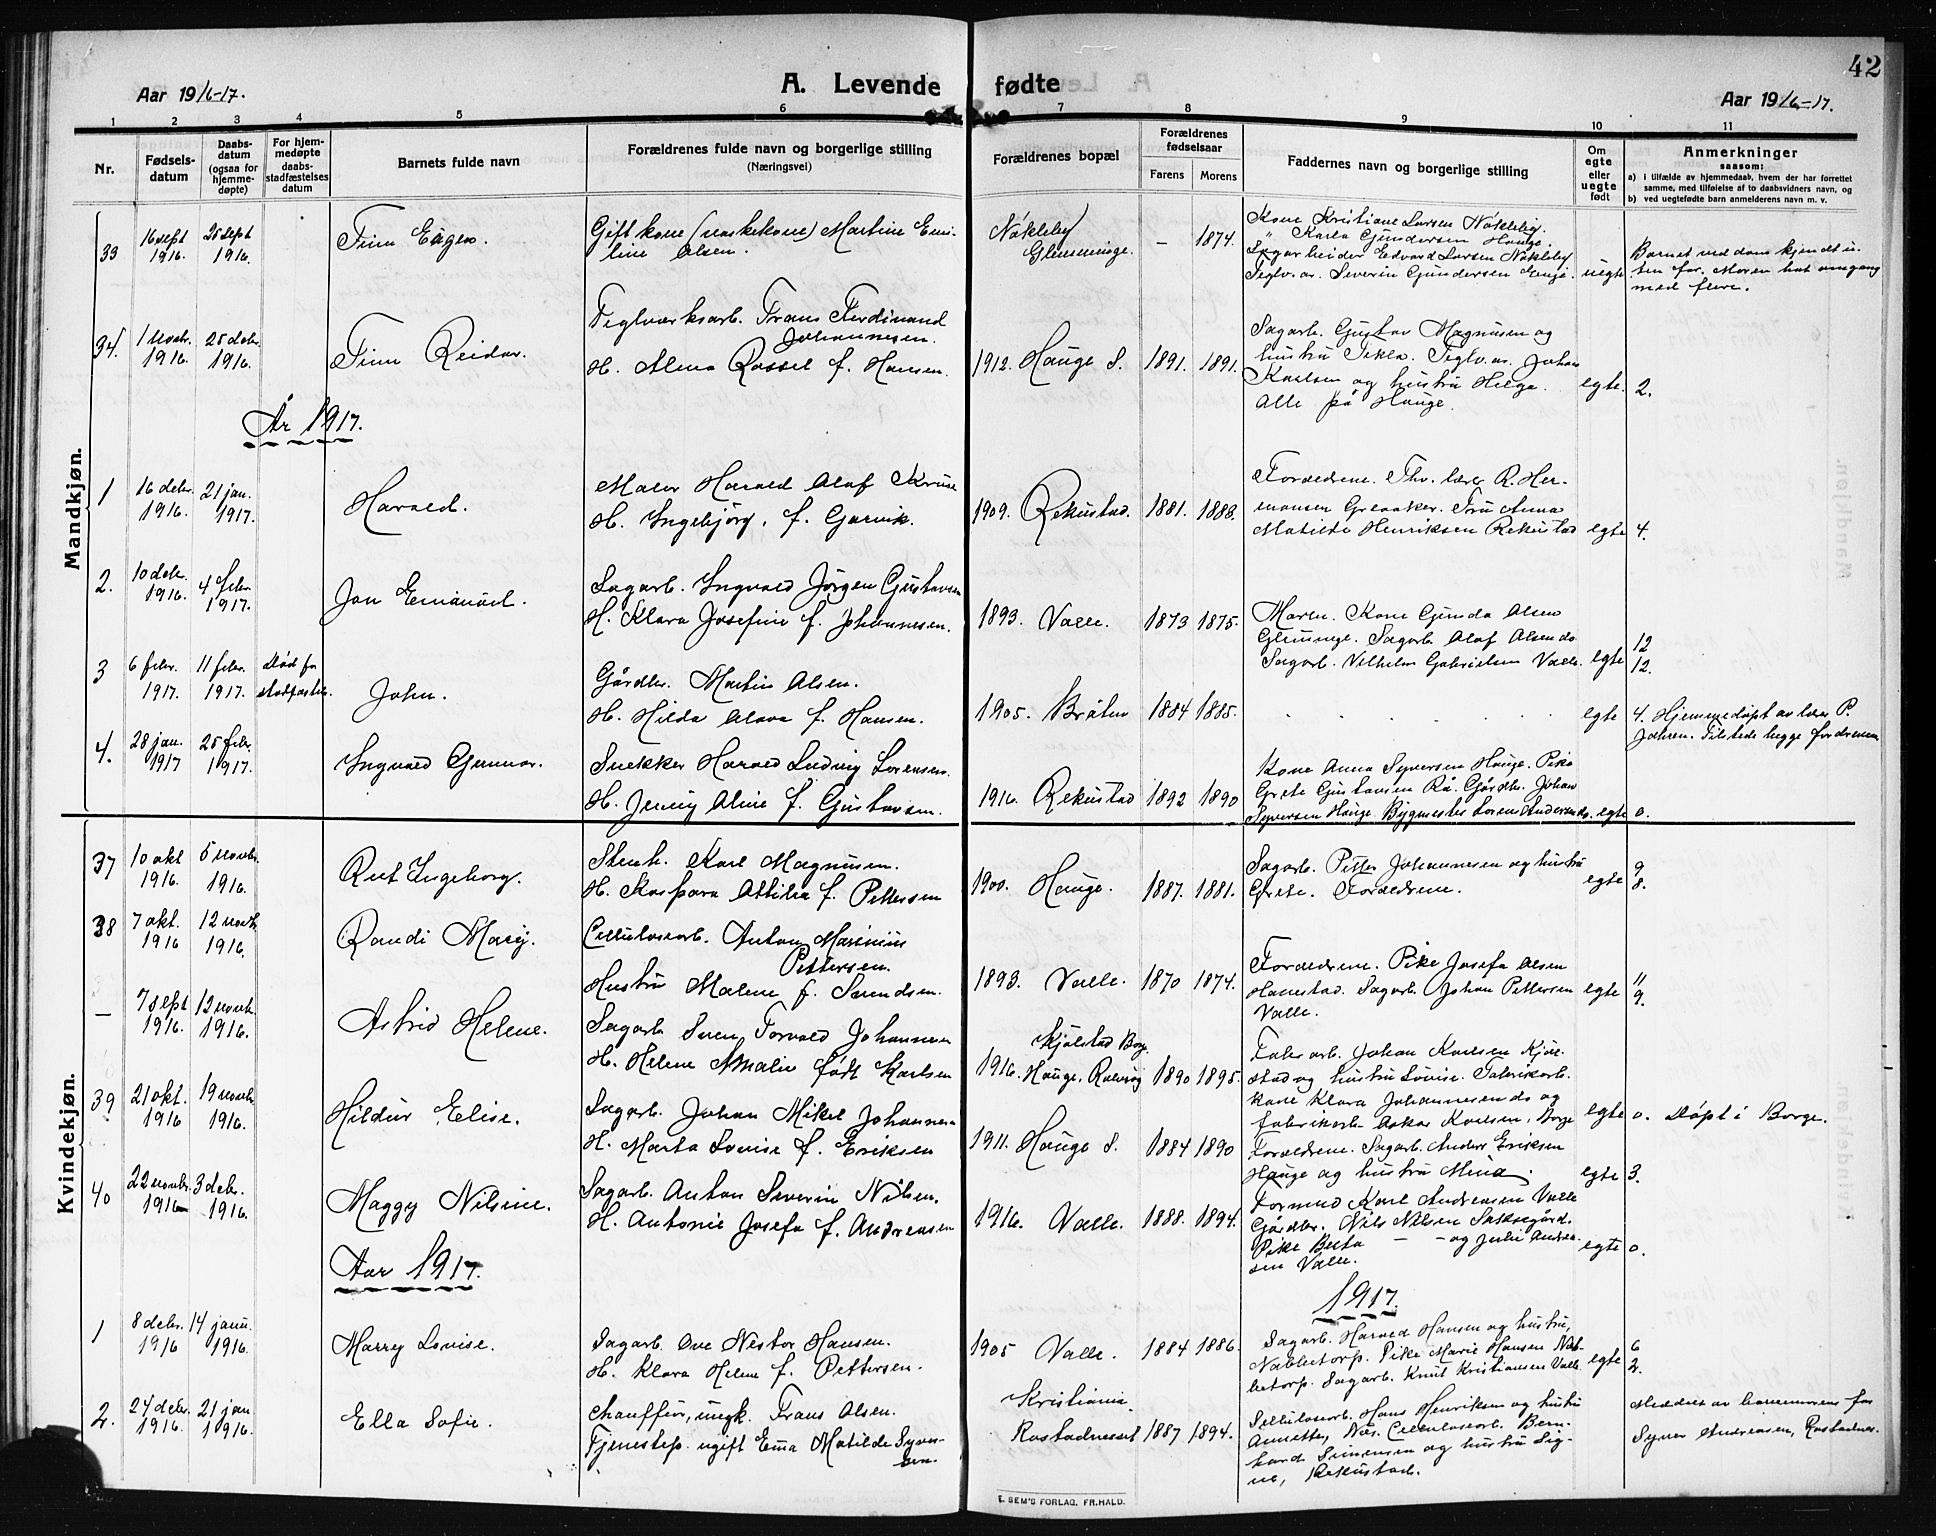 42
A. Levende fødte
Aar 1916-17.
Aar 1916-17.
1 2 3 4 5 6 7 8 9 10 11
Nr.
Fødsels-
datum
Daabs-
datum
(ogsaa for
hjemme-
døpte)
For hjem-
medøpte
daabs-
stadfæstelses
datum
Barnets fulde navn
Forældrenes fulde navn og borgerlige stilling
(Næringsvei)
Forældrenes bopæl
Forældrenes
fødselsaar
Farens Morens
Faddernes navn og borgerlige stilling
Om
egte
eller
uegte
født
Anmerkninger
saasom:
a) i tilfælde av hjemmedaab, hvem der har forrettet
samme, med tilføielse af to daabsvidners navn, og
b) ved uegtefødte barn anmelderens navn m. v.
Mandkjøn.
33 16 sept 1916. 25 sept 1916.
Finn Eugen.
Gift kone (vaskekone) Martine Emi-
line Olsen.
Nökleby
Glemminge.
– 1874.
Kone Kristiane Larsen Nökleby.
" Karla Gundersen Hauge.
Sagarbeider Edvard Larsen Nökleby
Teglv.ar. Severin Gundersen Hauge.
uegte
Barnet ved dom kjendt u-
ten far. Moren hat omgang
med flere.
34. 1 novbr. 1916. 25 debr. 1916.
Finn Reidar.
Teglverksarb. Frans Ferdinand
Johannesen.
H. Alma Rassel f. Hansen.
1912. Hauge S. 1891. 1891.
Sagarb. Gustav Magnusen og
hustru Tekla. Teglv.ar. Johan
Karlsen og hustru Helga.
Alle på Hauge.
egte. 2.
År 1917.
1 16 debr. 1916. 21 jan. 1917.
Harald.
Maler Harald Olaf Kruse
H. Ingebjörg. f. Garvik.
1909. Rekustad. 1881. 1888.
Foreldrene. Thv. lærer R. Her-
mansen Greaaker. Fru Anna
Matilde Henriksen Rekustad
egte 4.
2. 10 debr. 1916. 4 febr. 1917.
Jan Emanuel.
Sagarb. Ingvald Jörgen Gustavsen
H. Klara Josefine f. Johannesen.
1893. Valle. 1873 1875.
Moren. Kone Gunda Olsen
Glemminge. Sagarb. Olaf Olsen do
Sagarb. Vilhelm Gabrielsen Valle.
egte 12
12.
3 6 febr. 1917. 11 febr. 1917. Död før
stadfæstels.
John.
Gårdbr. Martin Olsen.
H. Hilda Olava f. Hansen.
1905. Bråten 1884 1885.
egte 4. Hjemmedöpt av lærer P.
Jahren. Tilstede begge foreldrene
4. 28 jan. 1917 25 febr. 1917.
Ingvald Gunnar.
Snekker Harald Ludvig Lorensen.
H. Jenny Aline f. Gustavsen.
1916. Rekustad 1892 1890
Kone Anna Syversen Hauge. Pike
Grete Gustavsen Rå. Gårdbr. Johan
Syversen Hauge. Bygmester Lorens Andersen do.
egte 0.
Kvindekjøn.
37 10 okt 1916. 5 novbr. 1916.
Rut Ingeborg.
Stenh. Karl Magnusen.
H. Kaspara Ottilia f. Pettersen
1900. Hauge. 1887. 1881.
Sagarb. Petter Johannesen og hustru
Grete. Foreldrene.
egte 9
8.
38 7 okt. 1916 12 novbr. 1916.
Randi Mary.
Cellulosearb. Anton Marinius
Pettersen.
Hustru Malene f. Svendsen.
1893. Valle. 1870 1874.
Foreldrene. Pike Josefa Olsen
Hannestad. Sagarb. Johan Pettersen
Valle.
egte 11
9.
— 7 sept 1916. 12 novbr. 1916.
Astrid Helene.
Sagarb. Sven Torvald Johannesen
H. Helene Amalie født Karlsen
Kjölstad Borge.
1916. Hauge, Rolvsöy 1890 1895.
Fabr.arb. Johan Karlsen Kjöl-
stad og hustru Lovise. Fabrikarb.
kone Klara Johannesen do og
fabrikarb. Oskar Karlsen, Borge
egte 0. Döpt i Borge.
39 21 okt. 1916 19 novbr. 1916.
Hildur Elise.
Sagarb. Johan Mikal Johannesen
H. Marta Lovise f. Eriksen
1911. Hauge S. 1884 1890
Foreldrene. Sagarb. Anders Eriksen
Hauge og hustru Mina.
egte 3.
40 22 novbr. 1916 3 debr. 1916.
Maggy Nilsine.
Sagarb. Anton Severin Nilsen.
H. Antonie Josefa f. Andreasen
1916. Valle. 1888. 1894.
Formand Karl Andreasen Valle
Gårdbr. Nils Nilsen Saksegård.
Pike Berta – – og Julie Andrea-
sen Valle.
egte 0.
Aar 1917.
1917.
1 8 debr. 1916 14 janu. 1916.
Marry Lovise.
Sagarb. Ove Nestor Hansen.
H. Klara Helene f. Pettersen.
1905 Valle. 1884 1886.
Sagarb. Harald Hansen og hustru,
Nabbetorp. Pike Marie Hansen Nab-
betorp. Sagarb. Knut Kristiansen Valle.
egte 6
2.
2. 24 debr. 1916. 21 jan 1916.
Ella Sofie.
Chauffür, ungk. Frans Olsen.
Tjenestep. ugift Emma Matilde Syver-
sen.
Kristiania.
Rostadneset 1887 1894.
Cellulosearb. Hans Henriksen og hustru
Annette, Nes. Cellulosearb. Bern-
hard Simensen og hustru Sig-
ne, Rekustad.
Meddelt av barnemorens far
Syver Andreasen, Rostadnes.
E. SEM'S FORLAG, FR.HALD.